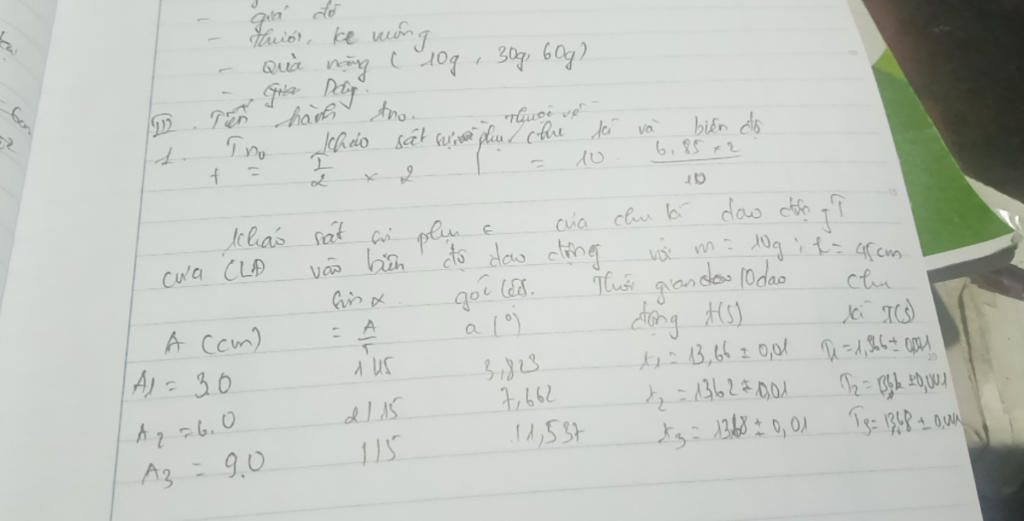 - giá đỡ
- thước, kẻ
- Quả nặng (10g, 30g, 60g)
III. Tiến hành tno.
1. Tno Khảo sát sự phụ thuộc về chu kì và biên độ
t = T/2 × 2 = 10 · (6,85 × 2)/10
Khảo sát phụ của chu kì dao động T
của CLĐ vào biên độ dao động với m = 10g; l = 45cm
A (cm) sin α = A/l góc lệch α (°) Thời gian 10 dao động t(s) chu kì T(s)
A1 = 3.0 1/15 3,823 t1 = 13,66 ± 0,01 T1 = 1,366 ± 0,001
A2 = 6.0 2/15 7,662 t2 = 1362 ± 0,01 ± 0,001
A3 = 9.0 1/5 11,537 t3 = 1368 ± 0,01 T3 = 1,368 ± 0,001